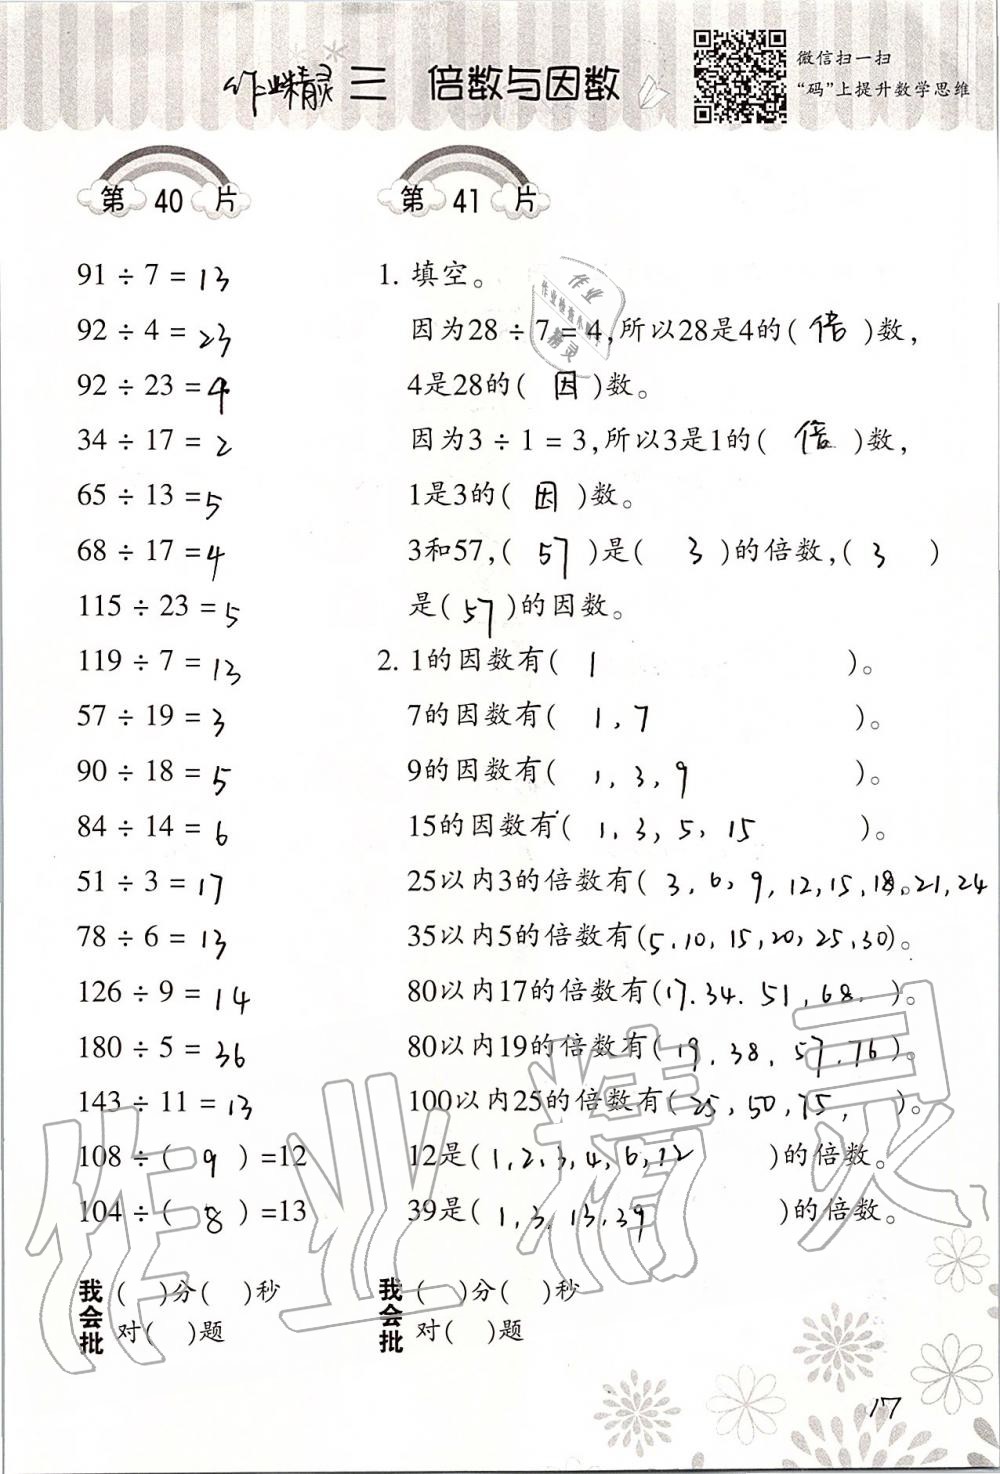 作业精灵 三 倍数与因数
微信扫一扫
“码”上提升数学思维
第 40 片
91 ÷ 7 = 13
92 ÷ 4 = 23
92 ÷ 23 = 4
34 ÷ 17 = 2
65 ÷ 13 = 5
68 ÷ 17 = 4
115 ÷ 23 = 5
119 ÷ 7 = 13
57 ÷ 19 = 3
90 ÷ 18 = 5
84 ÷ 14 = 6
51 ÷ 3 = 17
78 ÷ 6 = 13
126 ÷ 9 = 14
180 ÷ 5 = 36
143 ÷ 11 = 13
108 ÷ ( 9 ) =12
104 ÷ ( 8 ) =13
我会批 ( )分( )秒
对( )题
第 41 片
1. 填空。
因为28 ÷ 7 = 4,所以28是4的( 倍 )数,
4是28的( 因 )数。
因为3 ÷ 1 = 3,所以3是1的( 倍 )数,
1是3的( 因 )数。
3和57,( 57 )是( 3 )的倍数,( 3 )
是( 57 )的因数。
2. 1的因数有( 1 )。
7的因数有( 1, 7 )。
9的因数有( 1, 3, 9 )。
15的因数有( 1, 3, 5, 15 )。
25以内3的倍数有( 3, 6, 9, 12, 15, 18。21, 24
35以内5的倍数有(5, 10, 15, 20, 25, 30)。
80以内17的倍数有(17. 34. 51, 68, )。
80以内19的倍数有( 19, 38, 57, 76 )。
100以内25的倍数有( 25, 50, 75, )。
12是( 1, 2, 3, 4, 6, 12 )的倍数。
39是( 1, 3, 13, 39 )的倍数。
我会批 ( )分( )秒
对( )题
17
作业精灵
作业
精灵